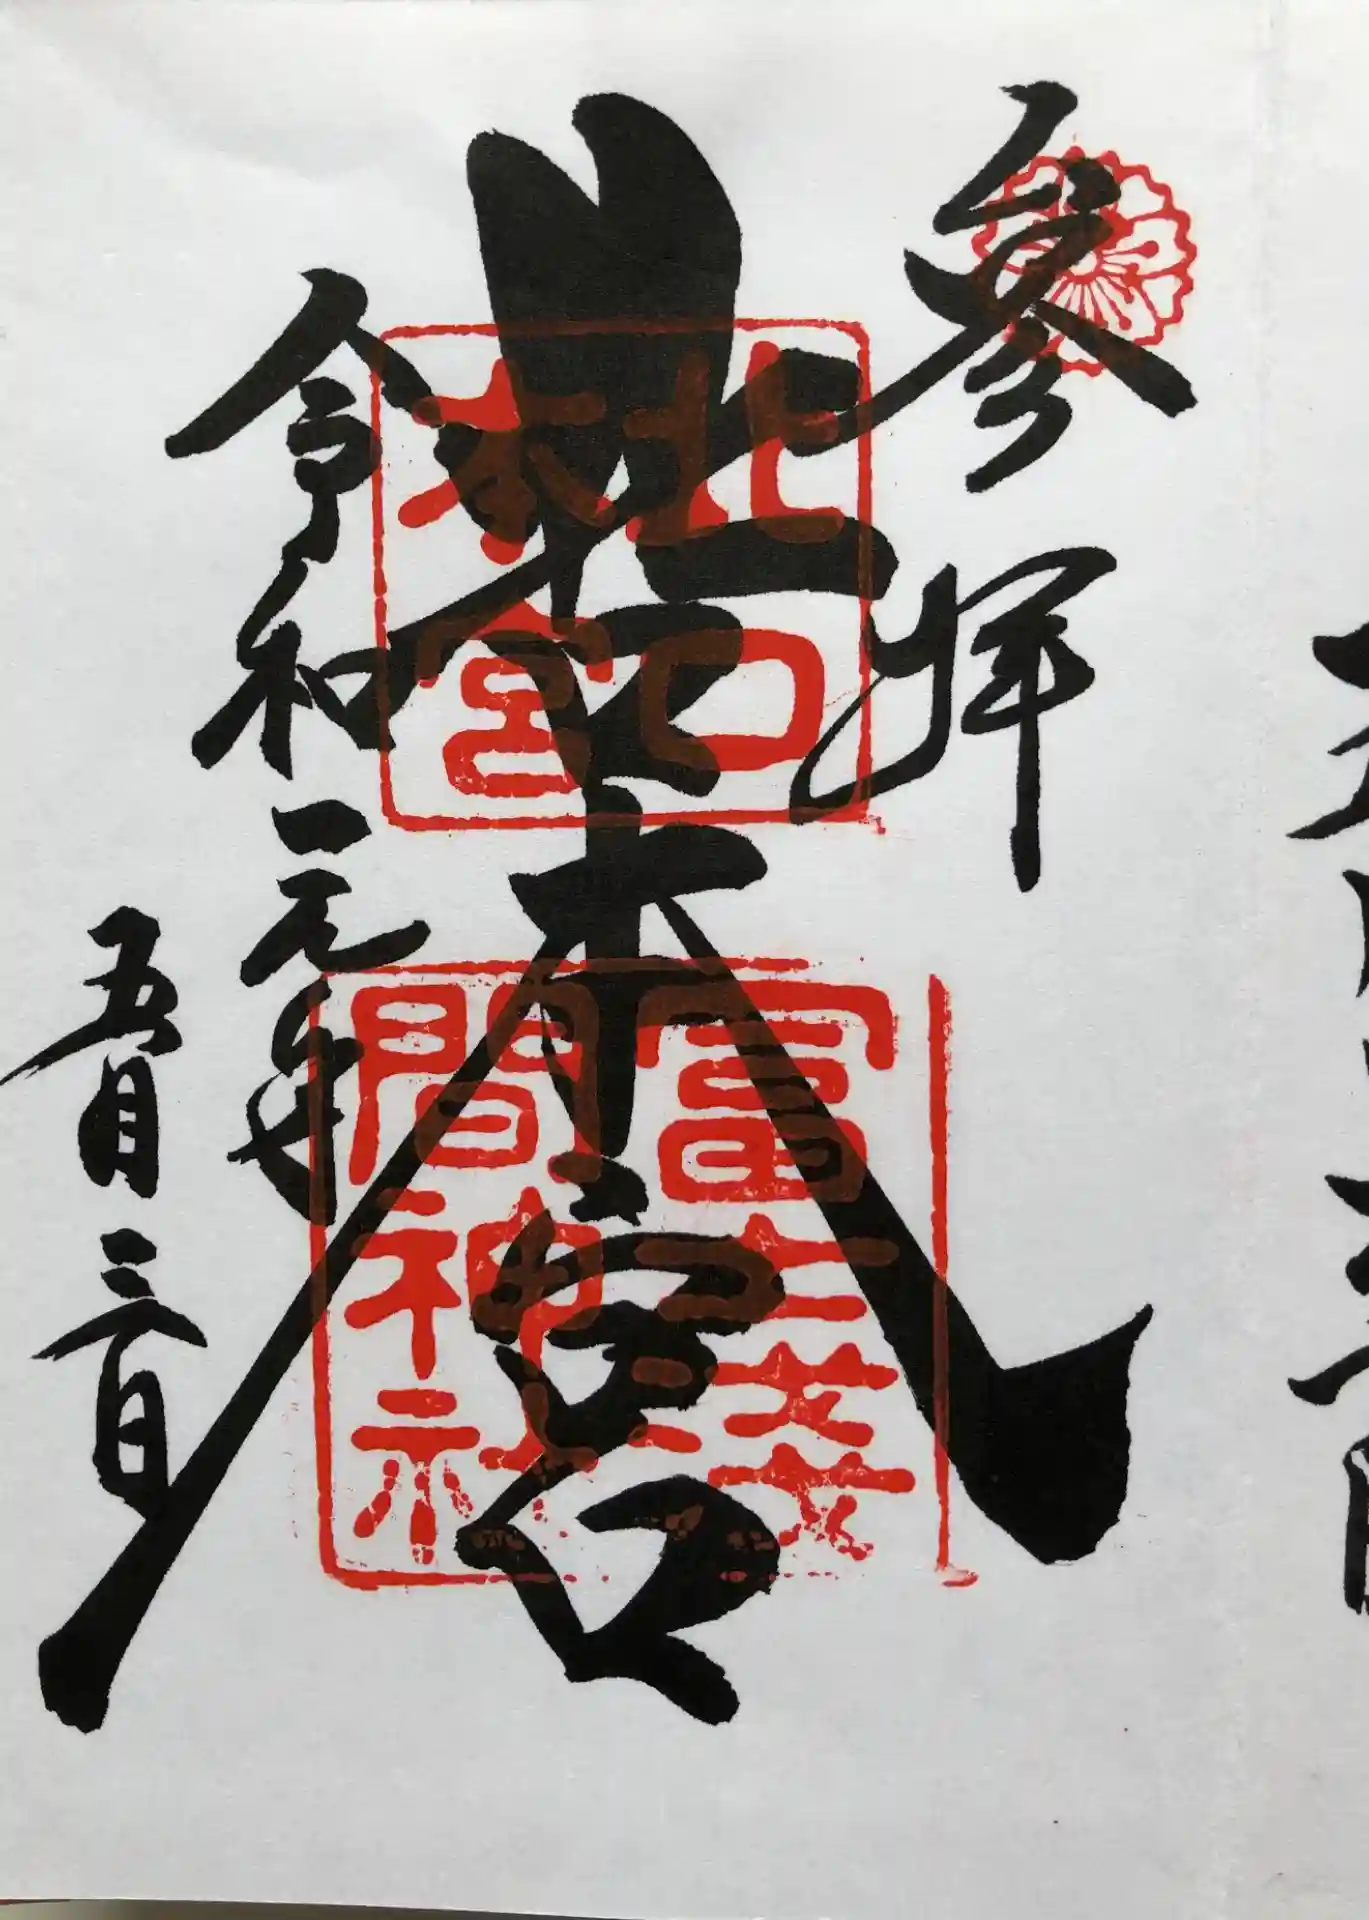 参拝
北口本宮
北口
本宮
冨士浅
間神社
令和元年
五月三日